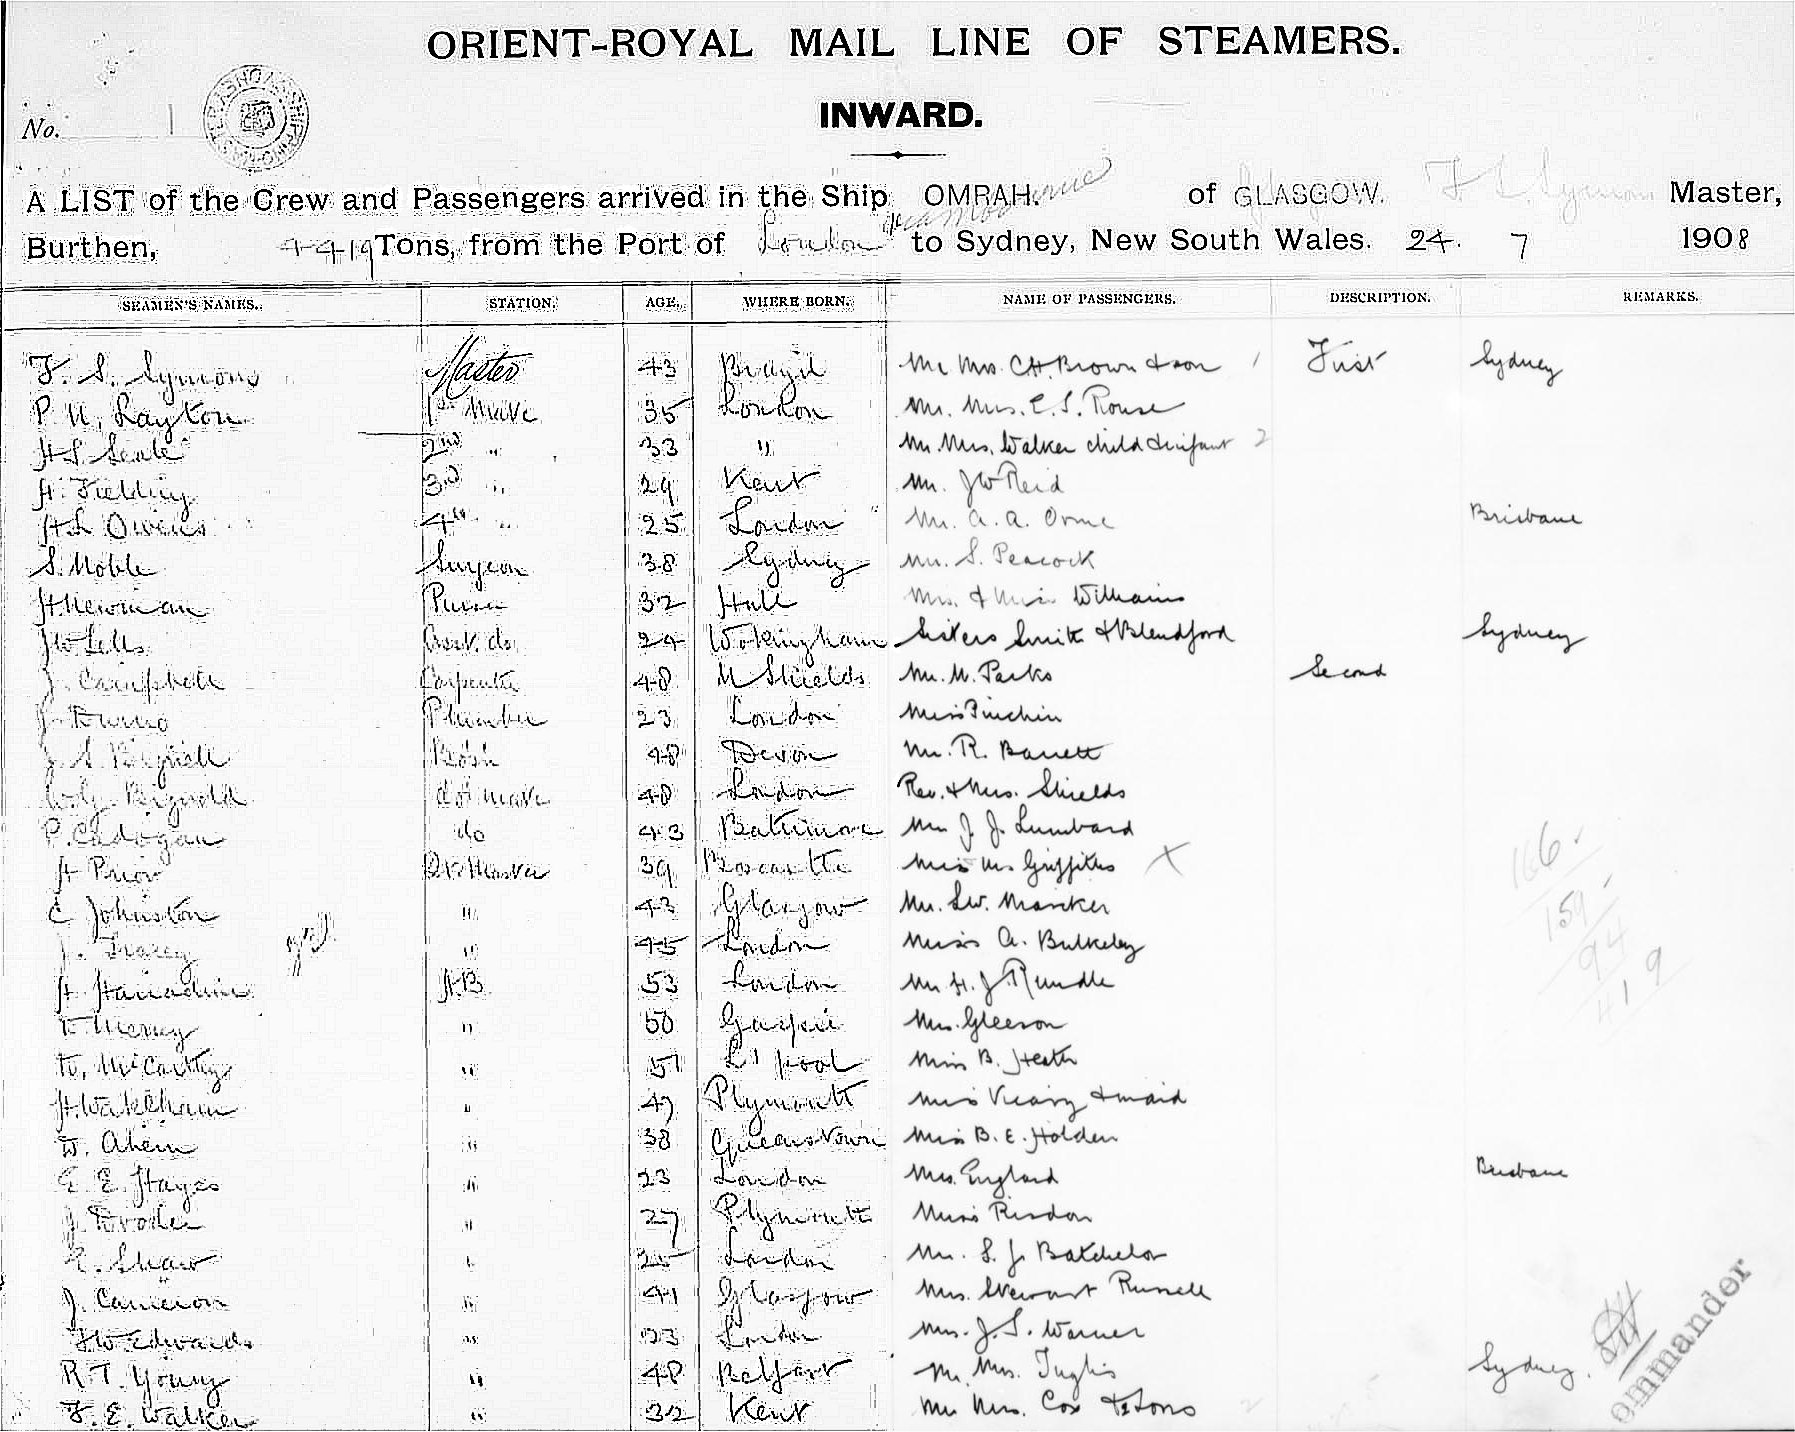 ORIENT-ROYAL MAIL LINE OF STEAMERS.
INWARD.
No. 1
A LIST of the Crew and Passengers arrived in the Ship OMRAH. of GLASGOW. F. S. Symons Master,
Burthen, 4419 Tons, from the Port of London to Sydney, New South Wales. 24. 7 1908
SEAMEN'S NAMES. STATION. AGE. WHERE BORN. NAME OF PASSENGERS. DESCRIPTION. REMARKS.
F. S. Symons Master 43 Brazil Mr Mrs. C.H. Brown & son 1 First Sydney
P. N. Layton 1st Mate 35 London Mr. Mrs. C. S. Rouse
H S Seale 2nd " 33 " Mr. Mrs. Walker child & infant 2
H. Fielding 3rd " 29 Kent Mr. J W Reid
H L Owens 4th " 25 London Mr. A. A. Orme Brisbane
S. Noble Surgeon 38 Sydney Mr. S. Peacock
H Newman Purser 32 Hull Mrs. & Miss Williams
J W Sells Asst. do 24 Wokingham Sisters Smith & Blendford Sydney
J. Campbell Carpenter 48 N Shields Mr. M. Parks Second
J. Plumber 23 London Miss Pinchin
J. S. Bignell Bosn 48 Devon Mr. R. Barrett
Bignold do's mate 48 London Rev. & Mrs. Shields
P. Cadogan do 43 Baltimore Mr J. J. Lumbard
H Prior Qr Master 39 Boscastle Miss M Griffiths X
C Johnston " 43 Glasgow Mr. S.W.
J. " 45 London Miss A. Bulkeley
H A.B. 53 London Mr H. J. Rundle
" 50 Mrs. Gleeson
D. McCarthy " 51 L'pool Miss B. Heath
H. Wakeham " 47 Plymouth Miss Vicary & maid
D. Ahern " 38 Queenstown Miss B. E. Holden
E. E. Hayes " 23 London Mrs. England Brisbane
J. " 27 Plymouth Miss Risdon
E. Shaw " 25 London Mr. S. J. Batchelor
J. Cameron " 41 Glasgow Mrs. Stewart Russell
F.W. Edwards " 23 London Mrs. J. S. Warner
R. T. Young " 48 Belfast Mr. Mrs. Inglis Sydney.
F. E. Walker " 32 Kent Mr Mrs. Cox & 2 Sons 2
166.
159
94
419
ommander